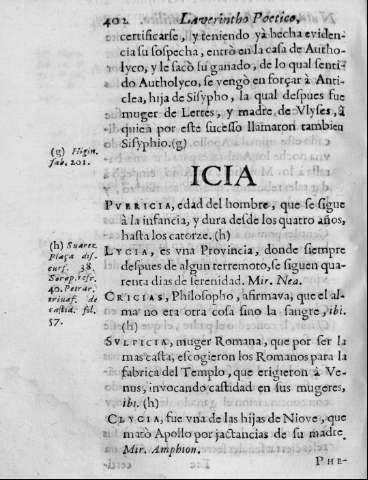 402. Laverintho Poetico,
certificarse, y teniendo yà hecha eviden-
cia su sospecha, entrò en la casa de Autho-
lyco, y le sacò su ganado, de lo qual senti-
do Autholyco, se vengò en forçar à Anti-
clea, hija de Sisypho, la qual despues fue
muger de Lertes, y madre de Vlyses, à
quien por este sucesso llamaron tambien
Sisyphio.(g)
(g) Higin.
fab. 201.
ICIA
PVERICIA, edad del hombre, que se sigue
à la infancia, y dura desde los quatro años,
hasta los catorze. (h)
LYCIA, es vna Provincia, donde siempre
despues de algun terremoto, se siguen qua-
renta dias de serenidad. Mir. Nea.
CRICIAS, Philosopho, afirmava, que el al-
ma no era otra cosa sino la sangre, ibi.
(h)
(h) Suarez
Plaça dis
curs. 38.
Serap. srfr.
40. Petrar.
triuaf. de
castid. fol.
57.
SVLPICIA, muger Romana, que por ser la
mas casta, escogieron los Romanos para la
fabrica del Templo, que erigieron à Ve-
nus, invocando castidad en sus mugeres,
ibi. (h)
CLYCIA, fue vna de las hijas de Niove, que
matò Apollo por jactancias de su madre.
Mir. Amphion.
PHE-